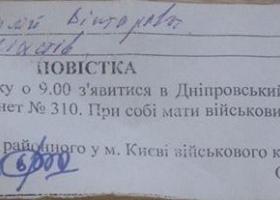 Вікторович
ПОВІСТКА
ку о 9.00 з'явитися в Дніпровський
нет № 310. При собі мати військови
районного у м. Києві військового к